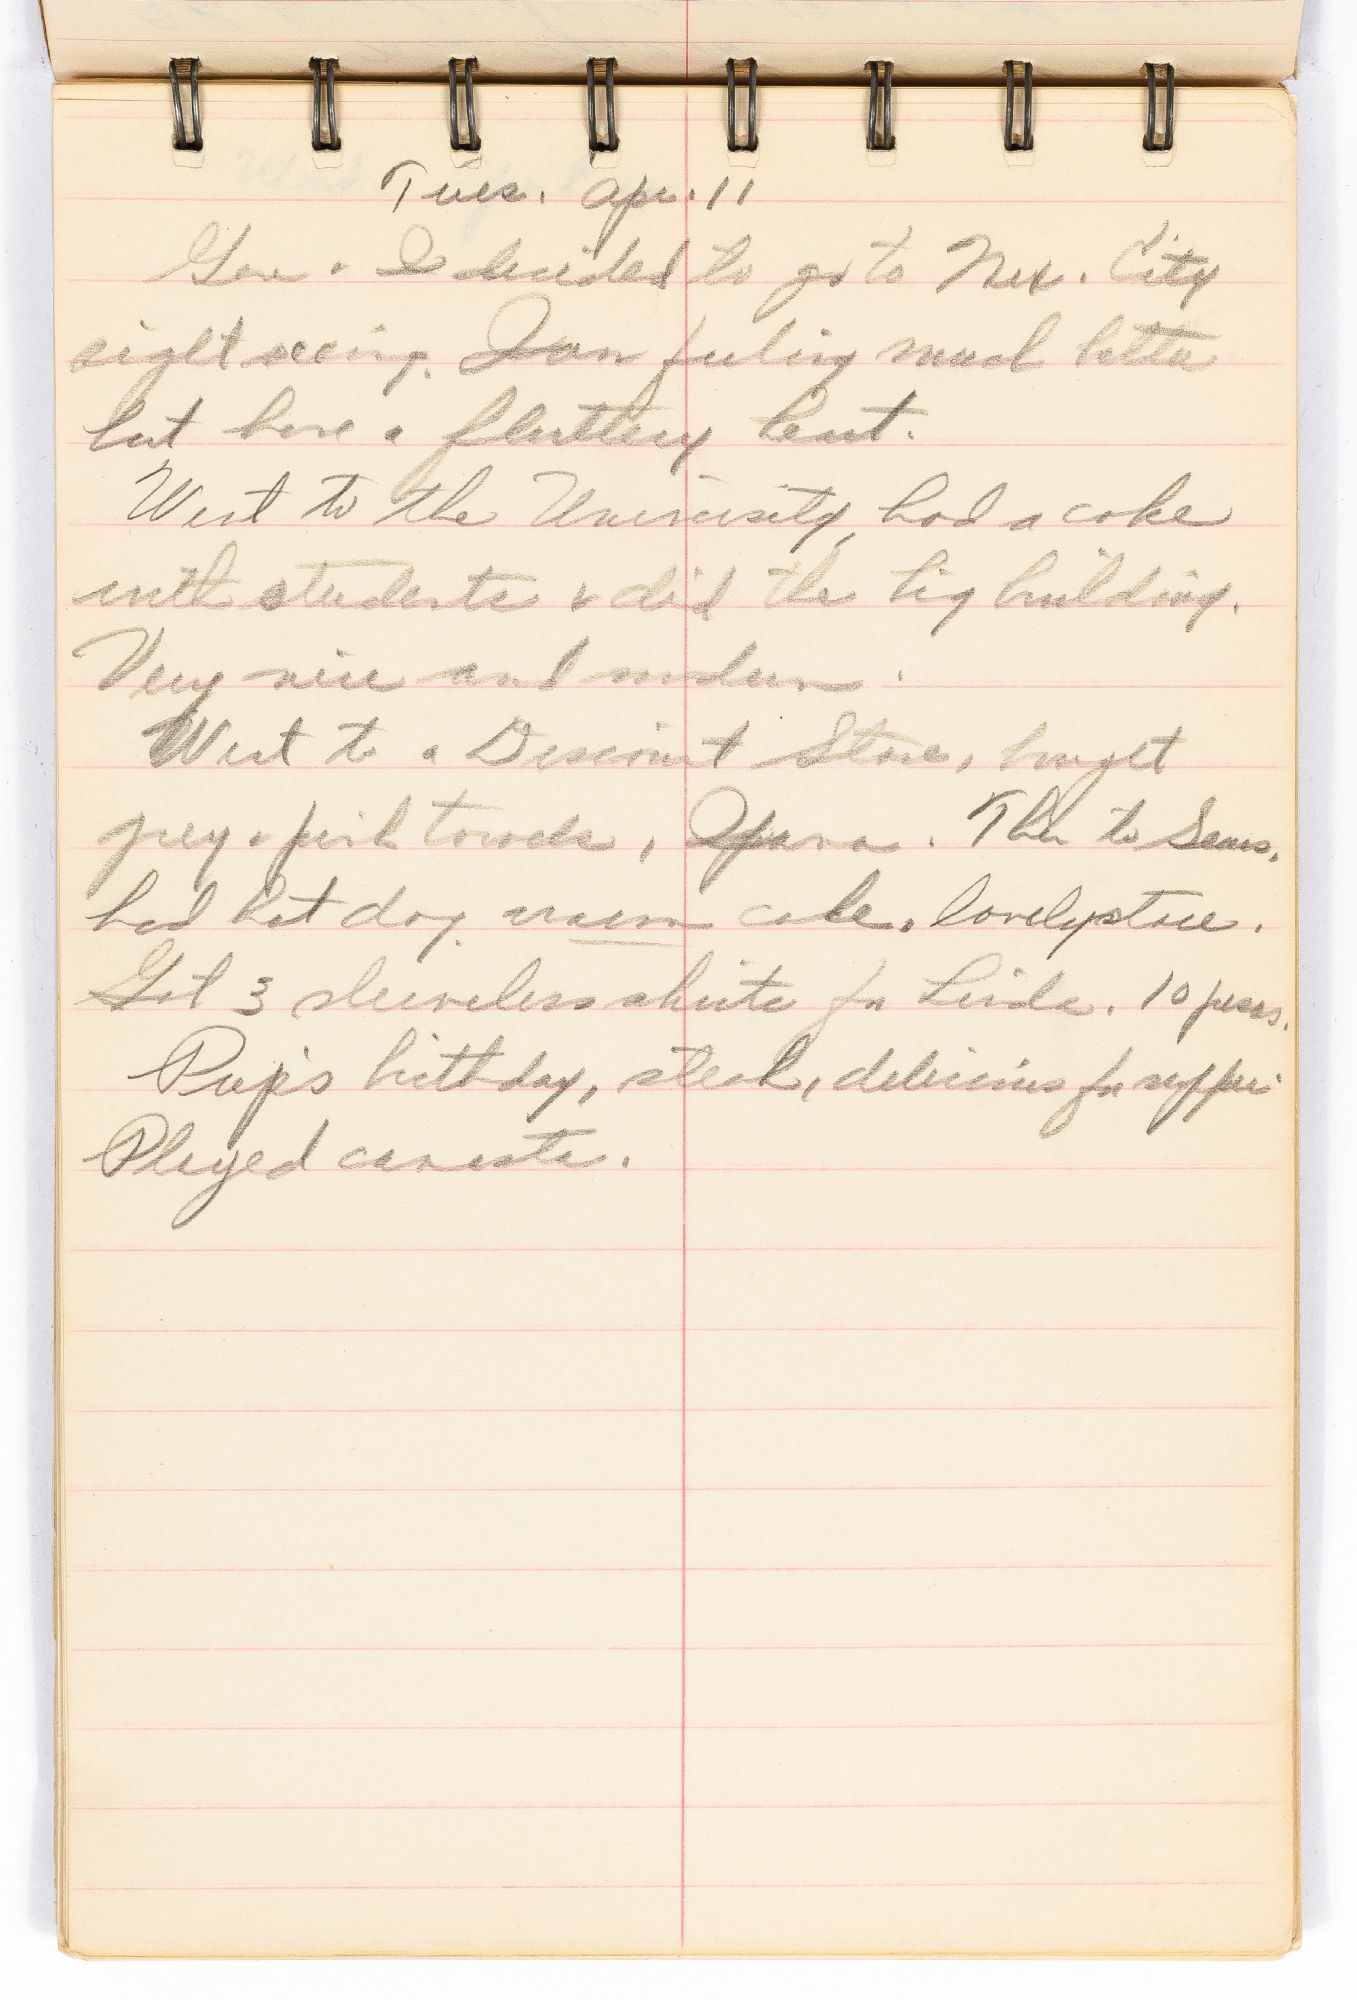 Tues. Apr. 11
& I decided to go to Mex. City
sight seeing. I am feeling much better
but have a fluttery heart.
Went to the University, had a coke
with students & did the big building.
Very nice and modern.
Went to a Discount Store, bought
grey & pink towels, Ipana. Then to Sears,
had hot dog warm coke, lovely store.
Got 3 sleeveless shirts for Linda. 10 pesos.
Pop's birthday, steak, delicious for supper
Played canasta.